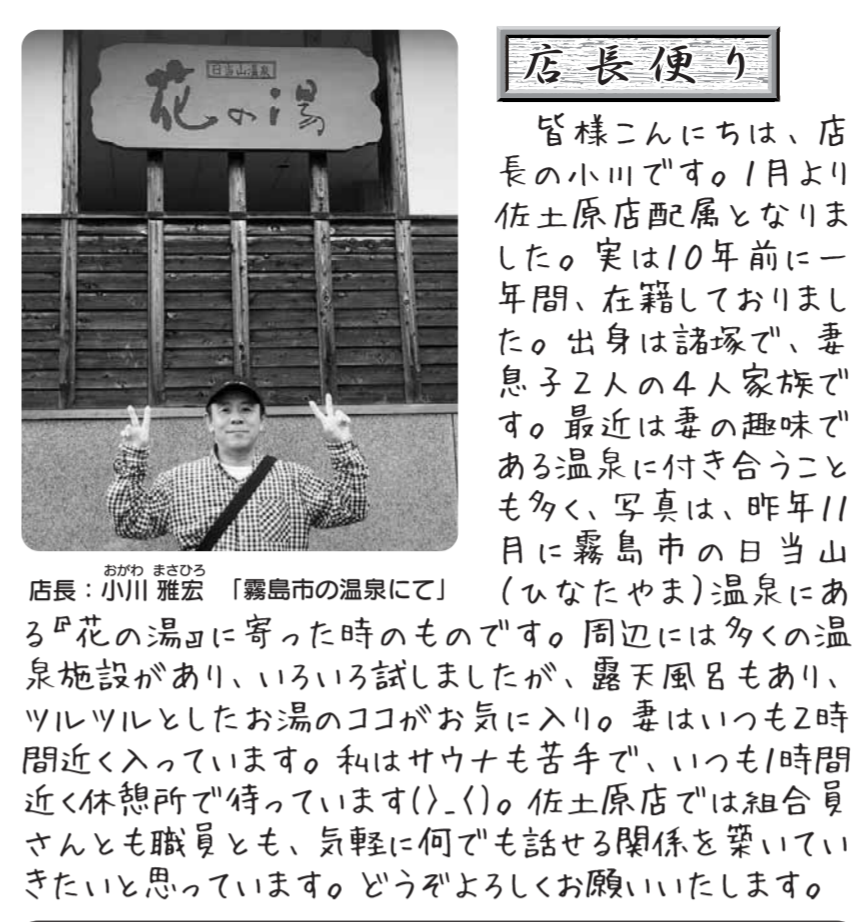 日当山温泉
花の湯
おがわ まさひろ
店長：小川 雅宏 「霧島市の温泉にて」
店長便り
皆様こんにちは、店
長の小川です。1月より
佐土原店配属となりま
した。実は10年前に一
年間、在籍しておりまし
た。出身は諸塚で、妻
息子2人の4人家族で
す。最近は妻の趣味で
ある温泉に付き合うこと
も多く、写真は、昨年11
月に霧島市の日当山
(ひなたやま)温泉にあ
る『花の湯』に寄った時のものです。周辺には多くの温
泉施設があり、いろいろ試しましたが、露天風呂もあり、
ツルツルとしたお湯のココがお気に入り。妻はいつも2時
間近く入っています。私はサウナも苦手で、いつも1時間
近く休憩所で待っています(〉_〈)。佐土原店では組合員
さんとも職員とも、気軽に何でも話せる関係を築いてい
きたいと思っています。どうぞよろしくお願いいたします。